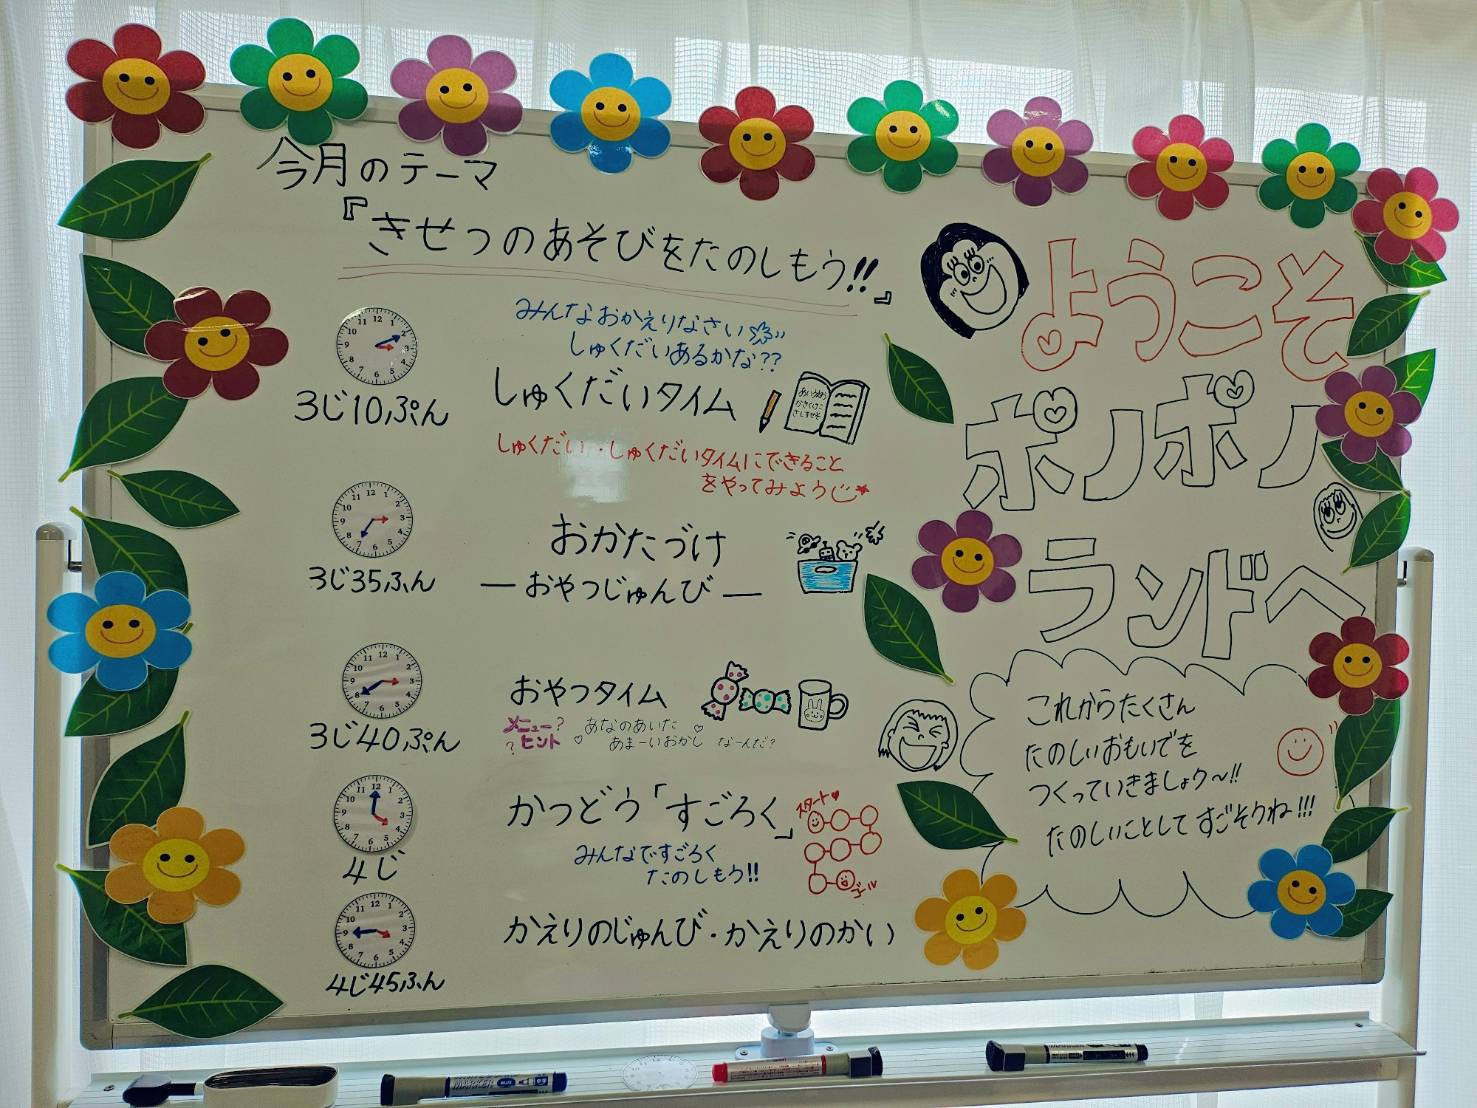 今月のテーマ
『きせつのあそびをたのしもう!!』
3じ10ぷん
みんなおかえりなさい
しゅくだいあるかな??
しゅくだいタイム
しゅくだい・しゅくだいタイムにできること
をやってみよう
3じ35ふん
おかたづけ
―おやつじゅんび―
3じ40ぷん
おやつタイム
メニュー?
?ヒント
あなのあいた
あまーいおかし なーんだ?
4じ
かつどう「すごろく」
みんなですごろく
たのしもう!!
スタート
ゴール
4じ45ふん
かえりのじゅんび・かえりのかい
ようこそ
ポノポノ
ランドへ
これからたくさん
たのしいおもいでを
つくっていきましょう～!!
たのしいことしてすごそうね!!!